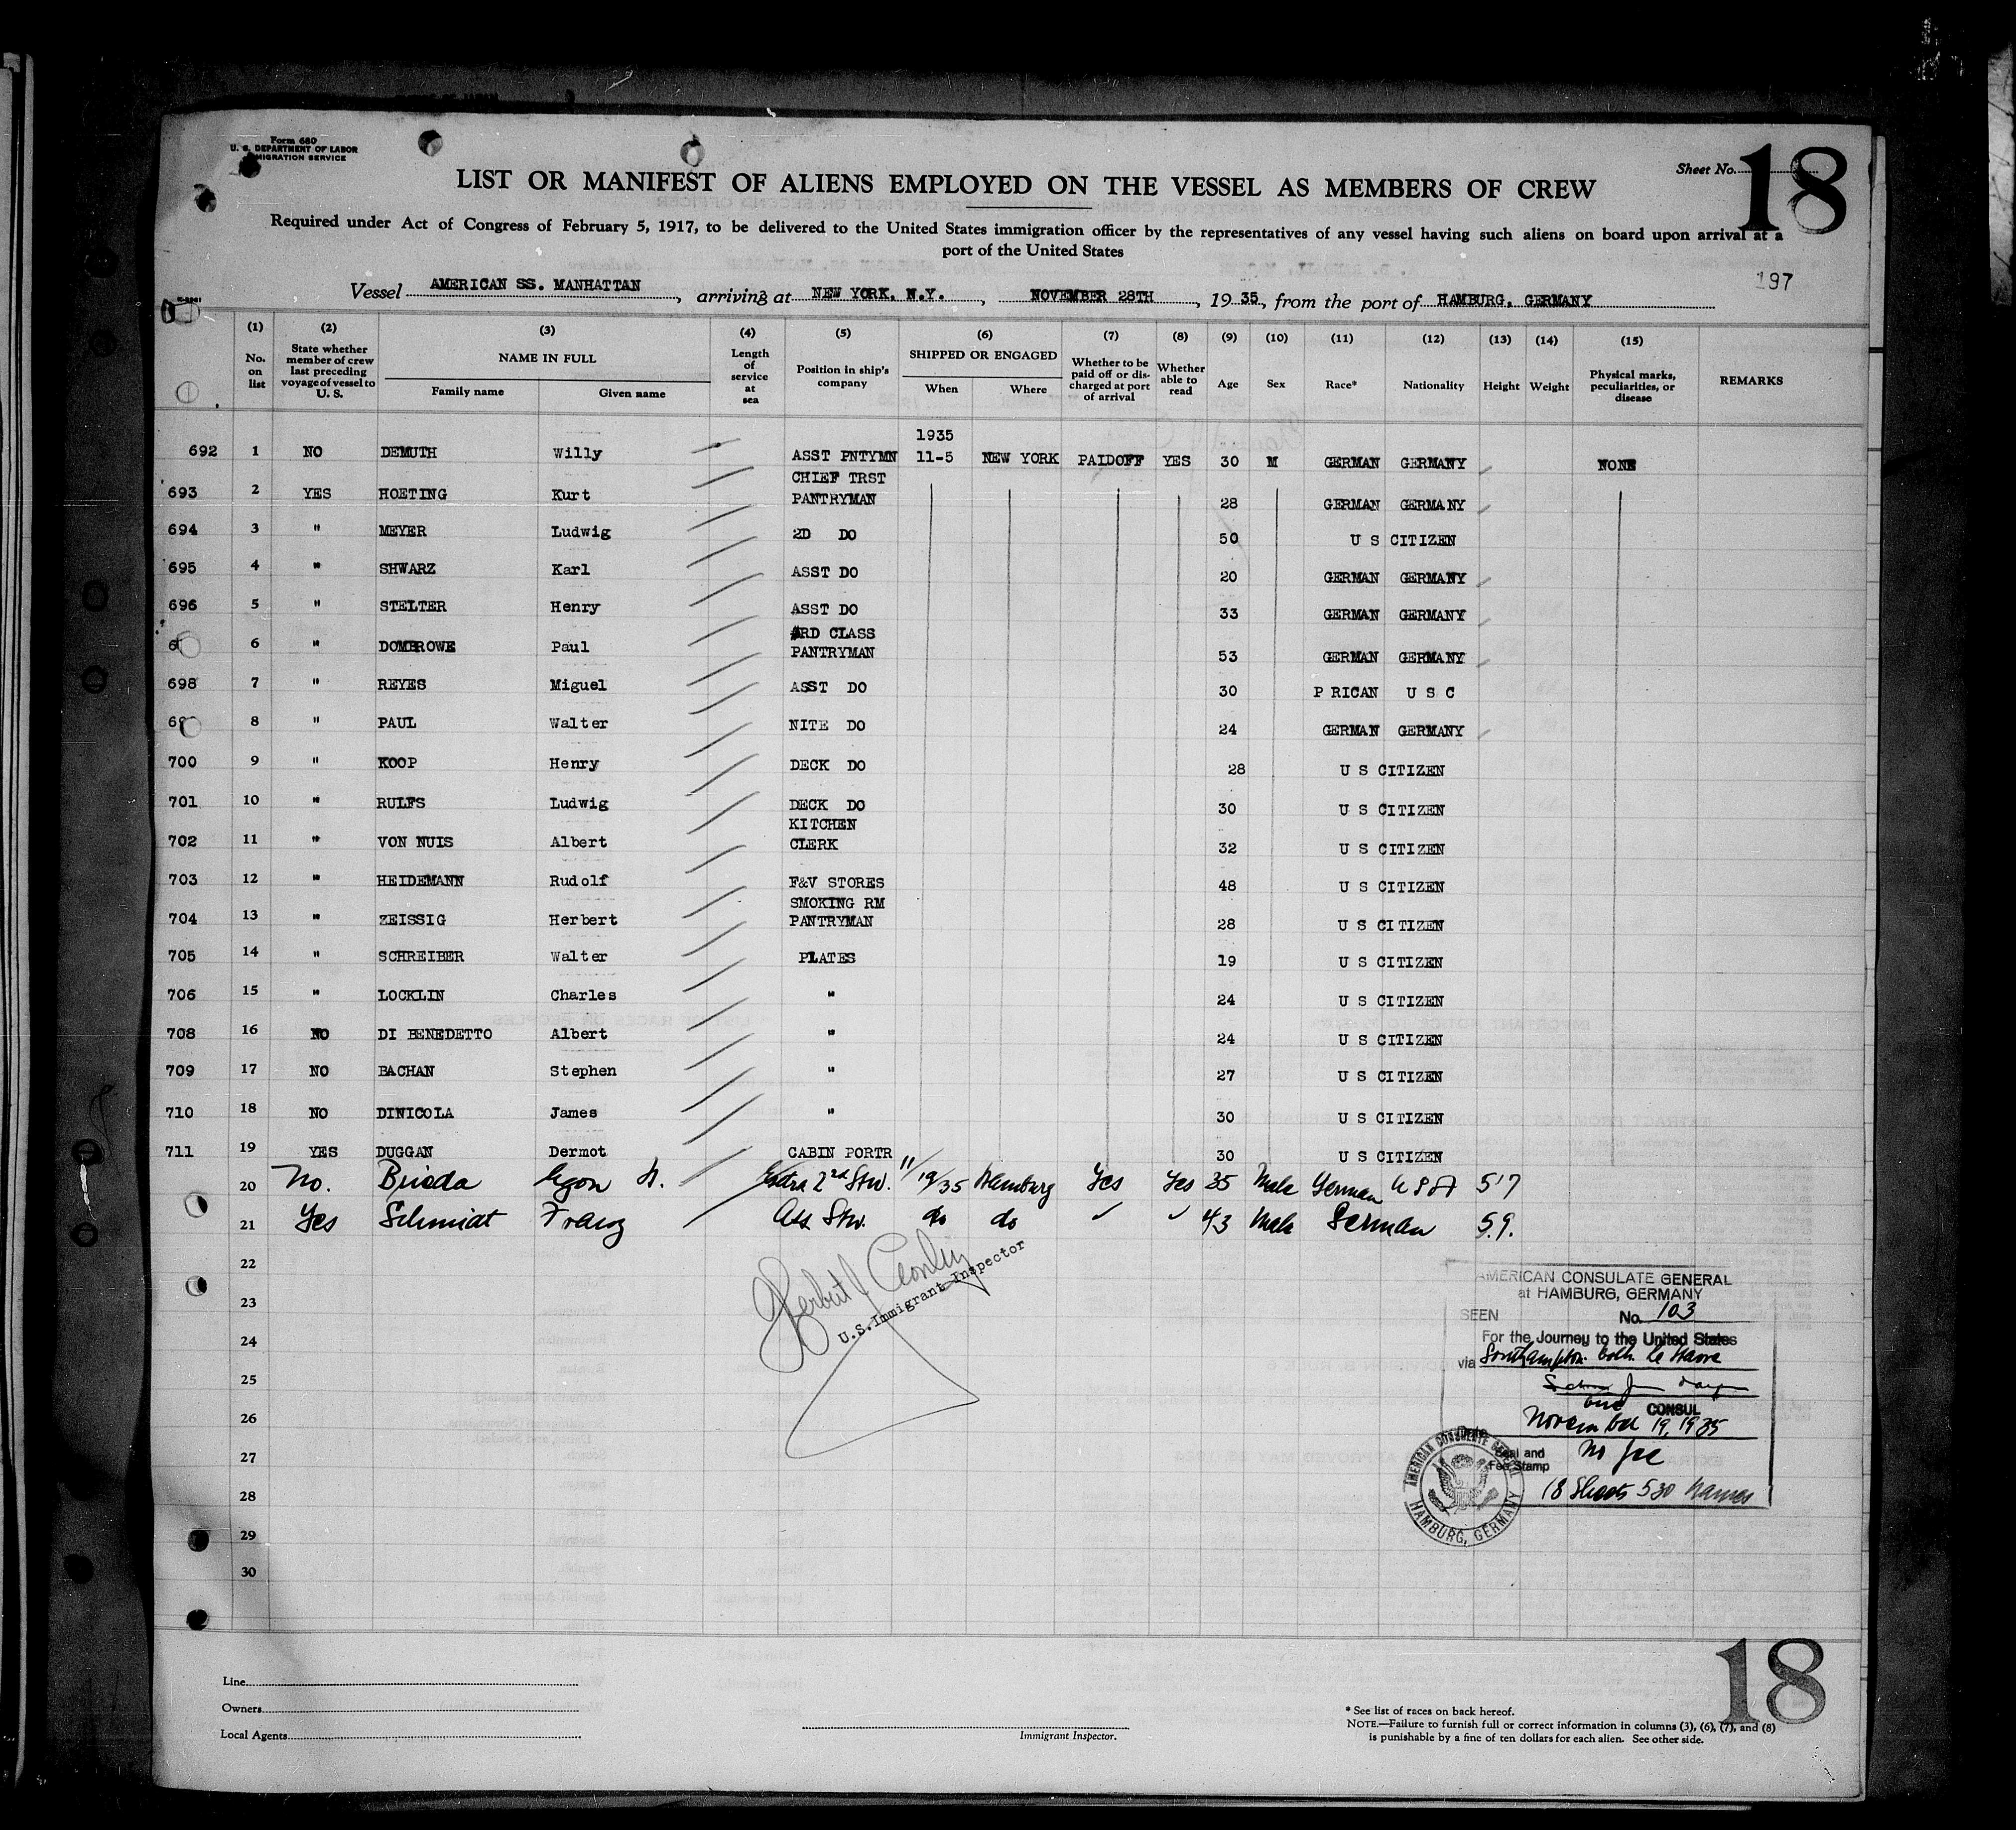 Form 680
U. S. DEPARTMENT OF LABOR
IMMIGRATION SERVICE
Sheet No. 18
LIST OR MANIFEST OF ALIENS EMPLOYED ON THE VESSEL AS MEMBERS OF CREW
Required under Act of Congress of February 5, 1917, to be delivered to the United States immigration officer by the representatives of any vessel having such aliens on board upon arrival at a
port of the United States
197
Vessel AMERICAN SS. MANHATTAN, arriving at NEW YORK, N.Y., NOVEMBER 28TH, 19 35, from the port of HAMBURG, GERMANY
(1) No. on list
(2) State whether member of crew last preceding voyage of vessel to U. S.
(3) NAME IN FULL Family name Given name
(4) Length of service at sea
(5) Position in ship's company
(6) SHIPPED OR ENGAGED When Where
(7) Whether to be paid off or discharged at port of arrival
(8) Whether able to read
(9) Age
(10) Sex
(11) Race*
(12) Nationality
(13) Height
(14) Weight
(15) Physical marks, peculiarities, or disease
REMARKS
1935
692 1 NO DEMUTH Willy ASST PNTYMN 11-5 NEW YORK PAIDOFF YES 30 M GERMAN GERMANY NONE
693 2 YES HOETING Kurt CHIEF TRST PANTRYMAN 28 GERMAN GERMANY
694 3 " MEYER Ludwig 2D DO 50 U S CITIZEN
695 4 " SHWARZ Karl ASST DO 20 GERMAN GERMANY
696 5 " STELTER Henry ASST DO 33 GERMAN GERMANY
6 6 " DOMBROWE Paul RD CLASS PANTRYMAN 53 GERMAN GERMANY
698 7 " REYES Miguel ASST DO 30 P RICAN U S C
69 8 " PAUL Walter NITE DO 24 GERMAN GERMANY
700 9 " KOOP Henry DECK DO 28 U S CITIZEN
701 10 " RULFS Ludwig DECK DO 30 U S CITIZEN
702 11 " VON NUIS Albert KITCHEN CLERK 32 U S CITIZEN
703 12 " HEIDEMANN Rudolf F&V STORES 48 U S CITIZEN
704 13 " ZEISSIG Herbert SMOKING RM PANTRYMAN 28 U S CITIZEN
705 14 " SCHREIBER Walter PLATES 19 U S CITIZEN
706 15 " LOCKLIN Charles " 24 U S CITIZEN
708 16 NO DI BENEDETTO Albert " 24 U S CITIZEN
709 17 NO BACHAN Stephen " 27 U S CITIZEN
710 18 NO DINICOLA James " 30 U S CITIZEN
711 19 YES DUGGAN Dermot CABIN PORTR 30 U S CITIZEN
20 No. Egon Extra 2nd Stw. 11/19/35 Hamburg Yes Yes 35 Male German USA 5'7
21 Yes Schmidt Franz Ass. Stw. do do ✓ ✓ 43 Male German 5.9.
22
23
24
25
26
27
28
29
30
Herbert J
U.S.Immigrant Inspector
AMERICAN CONSULATE GENERAL
at HAMBURG, GERMANY
SEEN No. 103
For the Journey to the United States
via Southampton Le Havre
CONSUL
November 19, 1935
Seal and
Fee Stamp
No fee
18 Sheets 530 Names
AMERICAN CONSULATE GENERAL
HAMBURG, GERMANY
18
Line
Owners
Local Agents
Immigrant Inspector.
* See list of races on back hereof.
NOTE.—Failure to furnish full or correct information in columns (3), (6), (7), and (8)
is punishable by a fine of ten dollars for each alien. See other side.